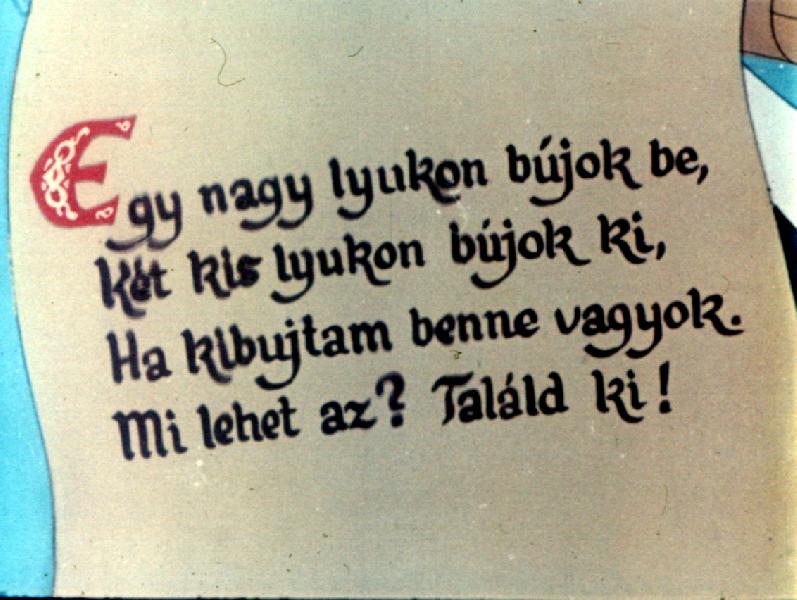 Egy nagy lyukon bújok be,
Két kis lyukon bújok ki,
Ha kibujtam benne vagyok.
Mi lehet az? Találd ki!